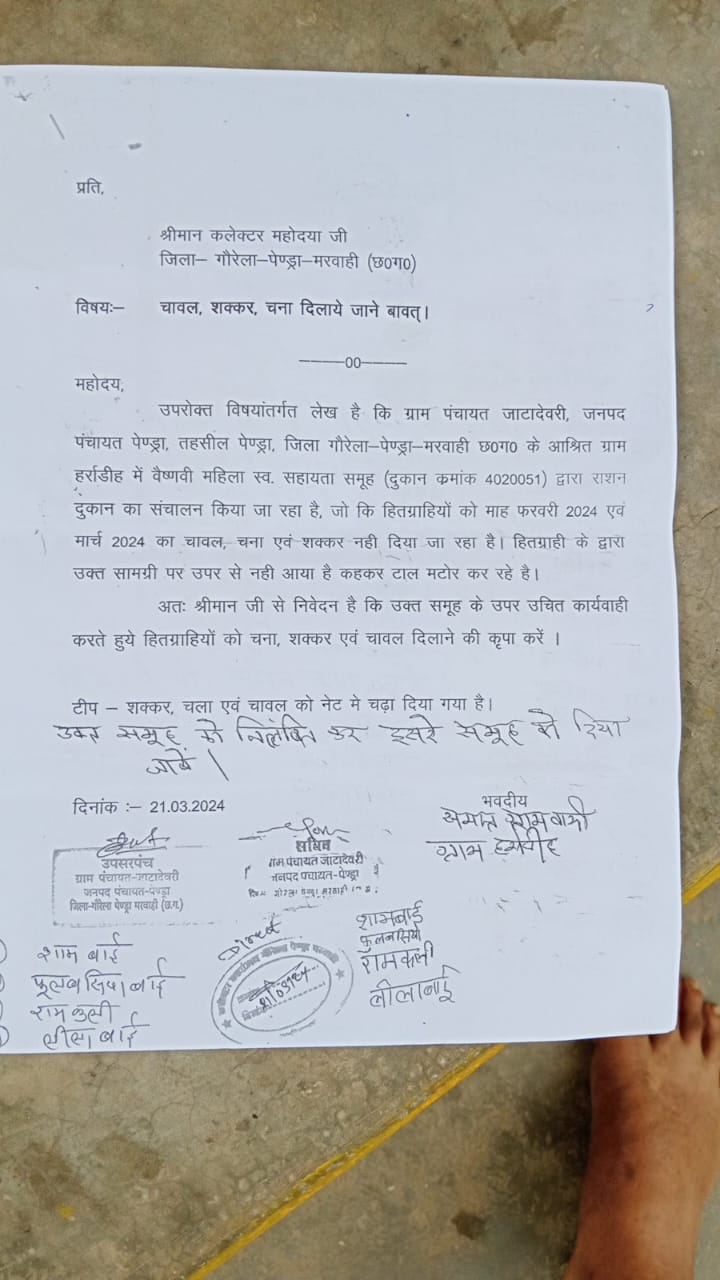 प्रति,
श्रीमान कलेक्टर महोदया जी
जिला– गौरेला–पेण्ड्रा–मरवाही (छ0ग0)
विषयः– चावल, शक्कर, चना दिलाये जाने बावत्।
————00————
महोदय,
उपरोक्त विषयांतर्गत लेख है कि ग्राम पंचायत जाटादेवरी, जनपद
पंचायत पेण्ड्रा, तहसील पेण्ड्रा, जिला गौरेला–पेण्ड्रा–मरवाही छ0ग0 के आश्रित ग्राम
हर्राडीह में वैष्णवी महिला स्व. सहायता समूह (दुकान कमांक 4020051) द्वारा राशन
दुकान का संचालन किया जा रहा है, जो कि हितग्राहियों को माह फरवरी 2024 एवं
मार्च 2024 का चावल, चना एवं शक्कर नही दिया जा रहा है। हितग्राही के द्वारा
उक्त सामग्री पर उपर से नही आया है कहकर टाल मटोर कर रहे है।
अतः श्रीमान जी से निवेदन है कि उक्त समूह के उपर उचित कार्यवाही
करते हुये हितग्राहियों को चना, शक्कर एवं चावल दिलाने की कृपा करें ।
टीप – शक्कर, चला एवं चावल को नेट मे चढ़ा दिया गया है।
उक्त समूह को निलंबित कर दुसरे समूह को दिया
जावें।
दिनांक :– 21.03.2024
भवदीय
समस्त ग्रामवासी
ग्राम
उपसरपंच
ग्राम पंचायत-जाटादेवरी
जनपद पंचायत-पेण्ड्रा
जिला-गौरेला पेण्ड्रा मरवाही (छ.ग.)
सचिव
ग्राम पंचायत जाटादेवरी
जनपद पंचायत-पेण्ड्रा
शामबाई
फुलबसिया
रामकली
लीलाबाई
शाम बाई
फूलबसिया बाई
राम कुली
लीला बाई
21/03/24